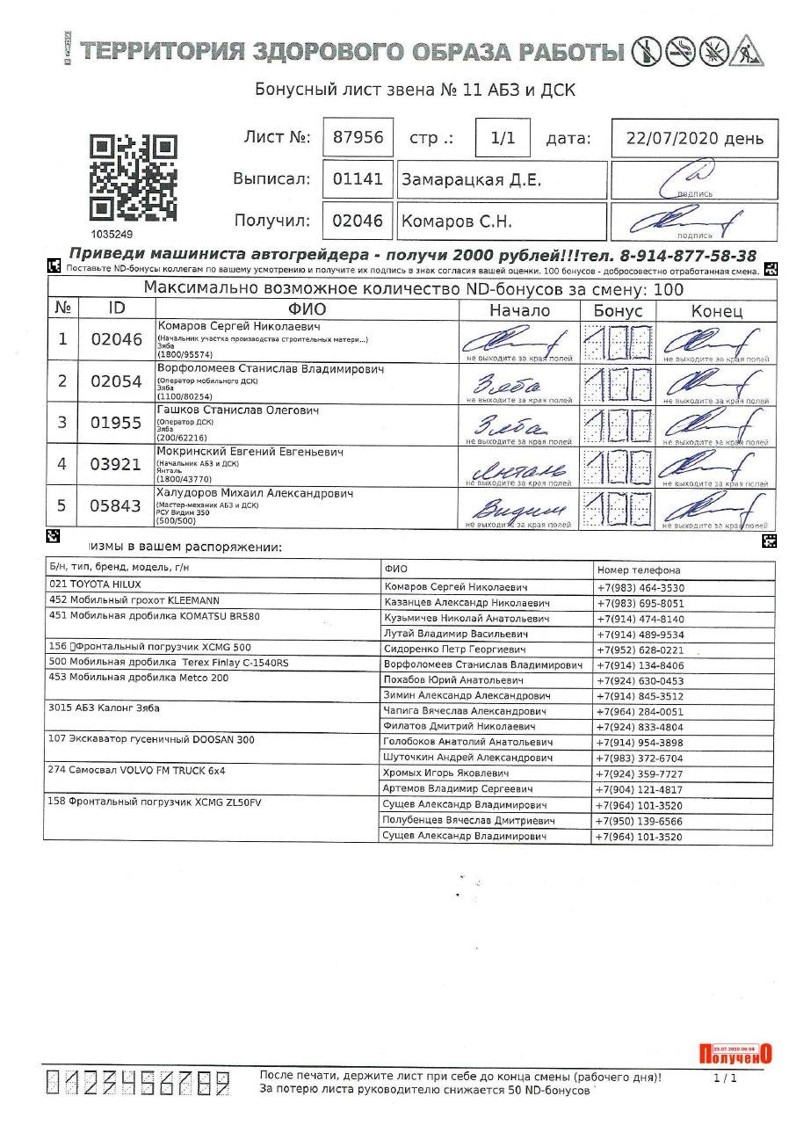 ТЕРРИТОРИЯ ЗДОРОВОГО ОБРАЗА РАБОТЫ
Бонусный лист звена № 11 АБЗ и ДСК
Лист №: 87956 стр .: 1/1 дата: 22/07/2020 день
Выписал: 01141 Замарацкая Д.Е.
подпись
Получил: 02046 Комаров С.Н.
подпись
1035249
Приведи машиниста автогрейдера - получи 2000 рублей!!!тел. 8-914-877-58-38
Поставьте ND-бонусы коллегам по вашему усмотрению и получите их подпись в знак согласия вашей оценки. 100 бонусов - добросовестно отработанная смена.
Максимально возможное количество ND-бонусов за смену: 100
№ ID ФИО Начало Бонус Конец
1 02046 Комаров Сергей Николаевич 100
(Начальник участка производства строительных матери...)
Зяба
(1800/95574)
не выходите за края полей не выходите за края полей
2 02054 Ворфоломеев Станислав Владимирович Зяба 100
(Оператор мобильного ДСК)
Зяба
(1100/80254)
не выходите за края полей не выходите за края полей
3 01955 Гашков Станислав Олегович Зяба 100
(Оператор ДСК)
Зяба
(200/62216)
не выходите за края полей не выходите за края полей
4 03921 Мокринский Евгений Евгеньевич Янталь 100
(Начальник АБЗ и ДСК)
Янталь
(1800/43770)
не выходите за края полей не выходите за края полей
5 05843 Халудоров Михаил Александрович Видим 100
(Мастер-механик АБЗ и ДСК)
РСУ Видим 350
(500/500)
не выходите за края полей не выходите за края полей
измы в вашем распоряжении:
Б/н, тип, бренд, модель, г/н ФИО Номер телефона
021 TOYOTA HILUX Комаров Сергей Николаевич +7(983) 464-3530
452 Мобильный грохот KLEEMANN Казанцев Александр Николаевич +7(983) 695-8051
451 Мобильная дробилка KOMATSU BR580 Кузьмичев Николай Анатольевич +7(914) 474-8140
Лутай Владимир Васильевич +7(914) 489-9534
156 Фронтальный погрузчик XCMG 500 Сидоренко Петр Георгиевич +7(952) 628-0221
500 Мобильная дробилка Terex Finlay C-1540RS Ворфоломеев Станислав Владимирович +7(914) 134-8406
453 Мобильная дробилка Metco 200 Похабов Юрий Анатольевич +7(924) 630-0453
Зимин Александр Александрович +7(914) 845-3512
3015 АБЗ Калонг Зяба Чапига Вячеслав Александрович +7(964) 284-0051
Филатов Дмитрий Николаевич +7(924) 833-4804
107 Экскаватор гусеничный DOOSAN 300 Голобоков Анатолий Анатольевич +7(914) 954-3898
Шуточкин Андрей Александрович +7(983) 372-6704
274 Самосвал VOLVO FM TRUCK 6x4 Хромых Игорь Яковлевич +7(924) 359-7727
Артемов Владимир Сергеевич +7(904) 121-4817
158 Фронтальный погрузчик XCMG ZL50FV Сущев Александр Владимирович +7(964) 101-3520
Полубенцев Вячеслав Дмитриевич +7(950) 139-6566
Сущев Александр Владимирович +7(964) 101-3520
ПолученО
0123456789
После печати, держите лист при себе до конца смены (рабочего дня)! 1 / 1
За потерю листа руководителю снижается 50 ND-бонусов